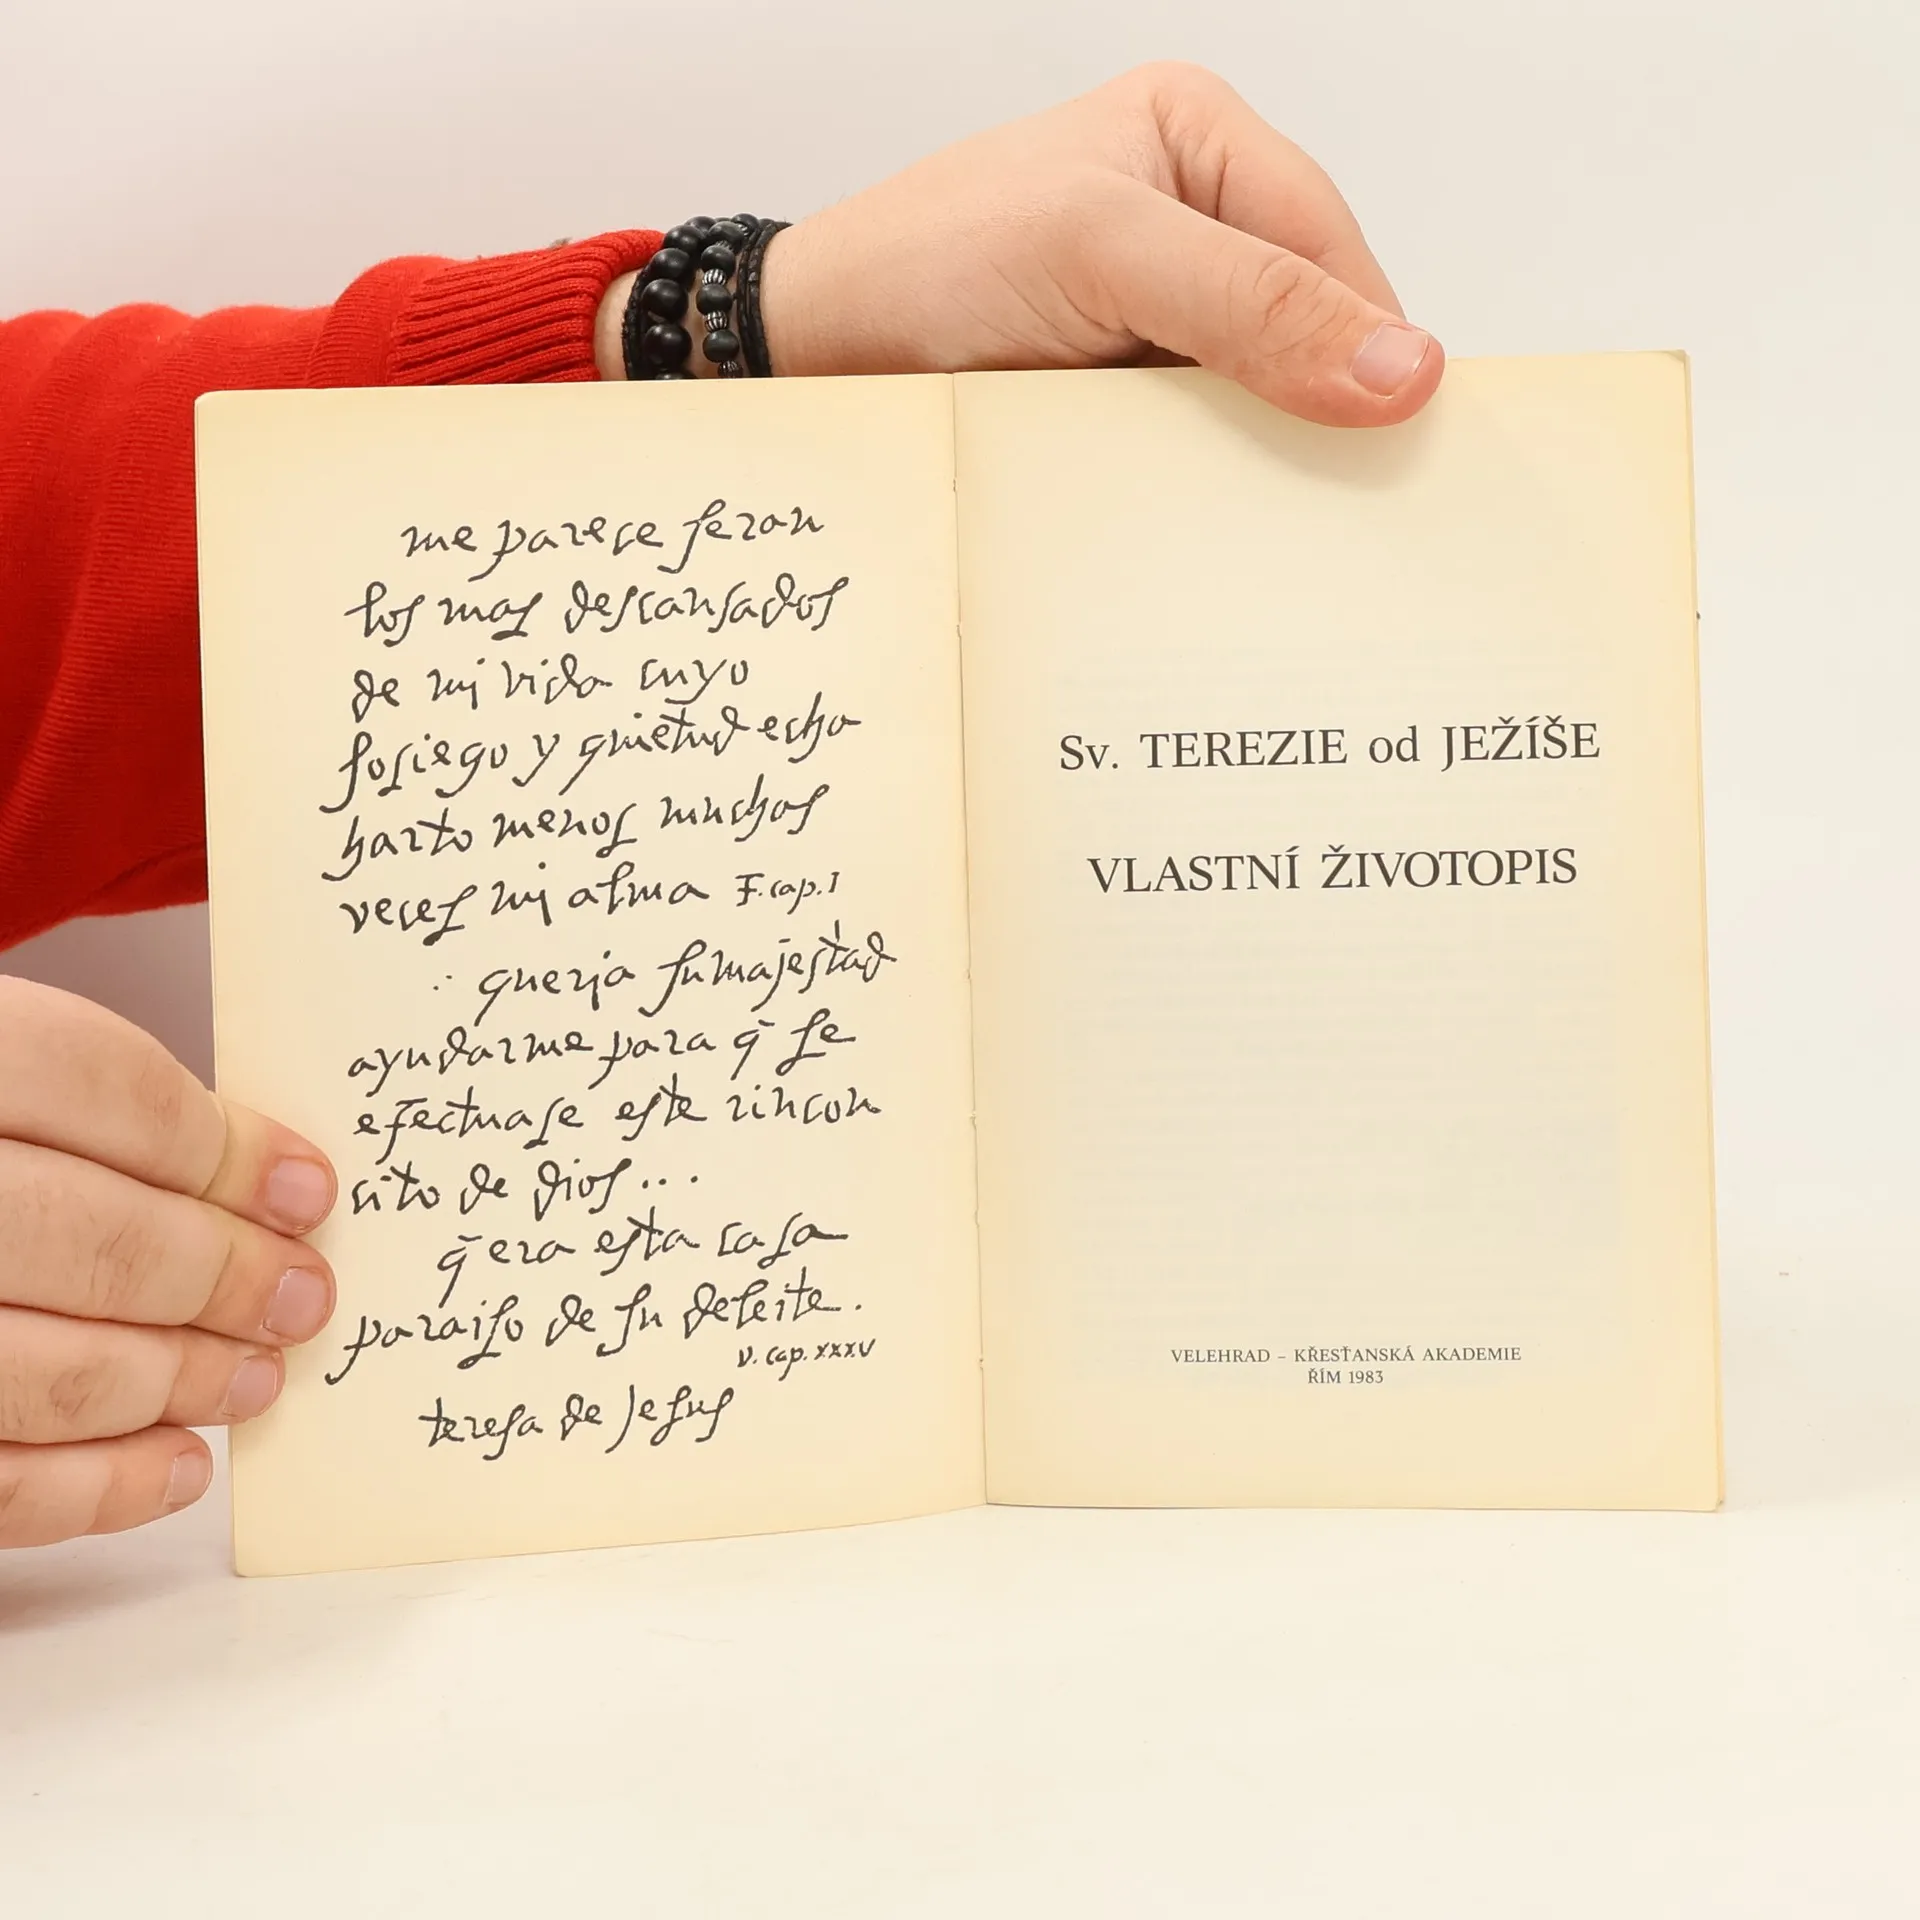 me parece seran
los mas descansados
de mi vida cuyo
sosiego y quietud echa
harto menos muchas
veces mi alma F. cap. I
: queria su majestad
ayudarme para q̄ se
efectuase este rincon
sito de dios...
q̄ era esta casa
paraiso de su deleite.
v. cap. xxxv
teresa de Jesus
Sv. TEREZIE od JEŽÍŠE
VLASTNÍ ŽIVOTOPIS
VELEHRAD – KŘESŤANSKÁ AKADEMIE
ŘÍM 1983